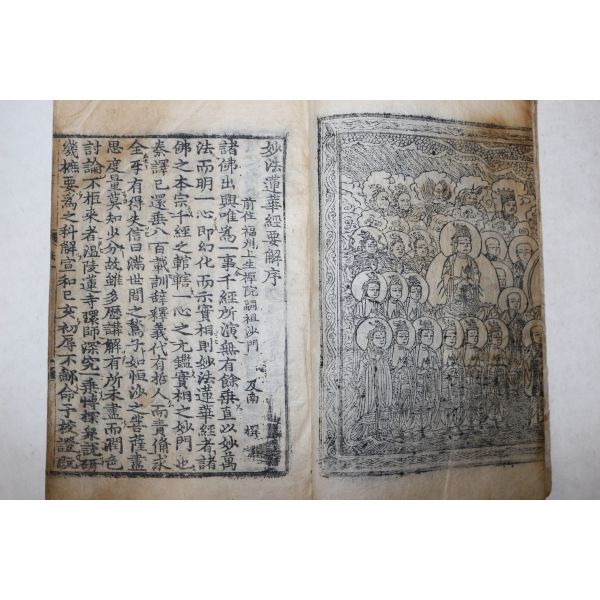 妙法蓮華經要解序
前住福州上生禪院嗣祖沙門 及南 撰
諸佛出興唯爲一事千經所演無有餘乘直以妙萬
法而明一心即幻化而示實相則妙法蓮華經者諸
佛之本宗千經之輨轄一心之元鑑實相之妙門也
秦譯已還垂八百載訓辭釋義代有哲人而責備求
全乎有得失信曰滿世間之鶖子如恒沙之菩薩盡
思度量莫知少分故雖多歷講解有所未盡而潤色
討論不拒來者溫陵蓮寺環師深究一乘博探衆說研
幾摭要爲之科解宣和己亥初辱不鄙命予校證旣